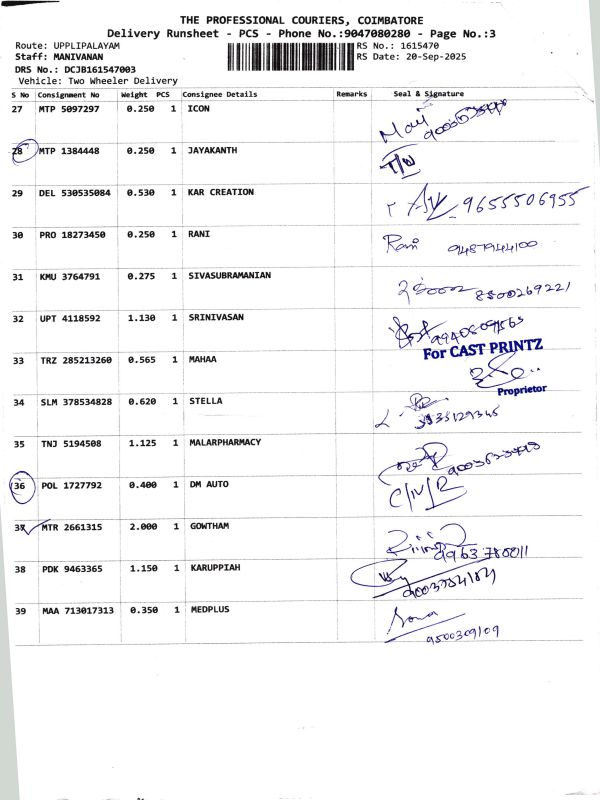 THE PROFESSIONAL COURIERS, COIMBATORE
Delivery Runsheet - PCS - Phone No.:9047080280 - Page No.:3
Route: UPPLIPALAYAM RS No.: 1615470
Staff: MANIVANAN RS Date: 20-Sep-2025
DRS No.: DCJB161547003
Vehicle: Two Wheeler Delivery
S No Consignment No Weight PCS Consignee Details Remarks Seal & Signature
27 MTP 5097297 0.250 1 ICON
28 MTP 1384448 0.250 1 JAYAKANTH
29 DEL 530535084 0.530 1 KAR CREATION 9655506955
30 PRO 18273450 0.250 1 RANI Rani 9487944100
31 KMU 3764791 0.275 1 SIVASUBRAMANIAN 8500269221
32 UPT 4118592 1.130 1 SRINIVASAN
For CAST PRINTZ
33 TRZ 285213260 0.565 1 MAHAA
Proprietor
34 SLM 378534828 0.620 1 STELLA
35 TNJ 5194508 1.125 1 MALARPHARMACY
36 POL 1727792 0.400 1 DM AUTO
37 MTR 2661315 2.000 1 GOWTHAM
38 PDK 9463365 1.150 1 KARUPPIAH
39 MAA 713017313 0.350 1 MEDPLUS
9500309109